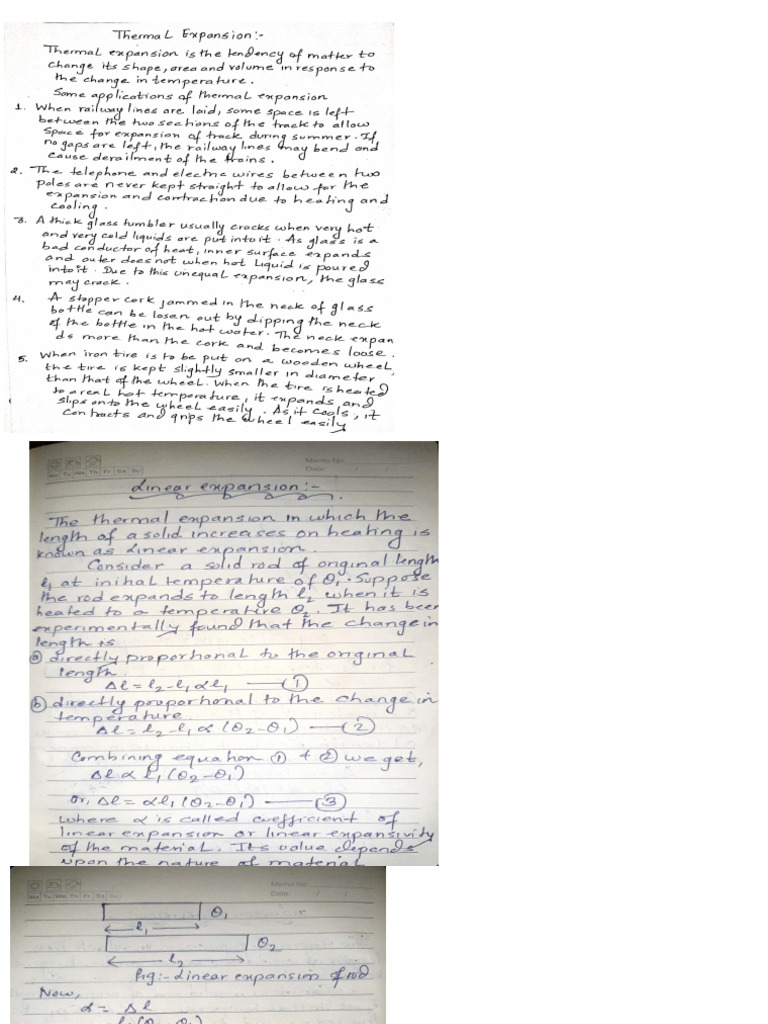 Thermal Expansion:-
Thermal expansion is the tendency of matter to
change its shape, area and volume in response to
the change in temperature.
Some applications of thermal expansion
1. When railway lines are laid, some space is left
between the two sections of the track to allow
space for expansion of track during summer. If
no gaps are left, the railway lines may bend and
cause derailment of the trains.
2. The telephone and electric wires between two
poles are never kept straight to allow for the
expansion and contraction due to heating and
cooling.
3. A thick glass tumbler usually cracks when very hot
and very cold liquids are put into it. As glass is a
bad conductor of heat, inner surface expands
and outer does not when hot liquid is poured
into it. Due to this unequal expansion, the glass
may crack.
4. A stopper cork jammed in the neck of glass
bottle can be losen out by dipping the neck
of the bottle in the hot water. The neck expan
ds more than the cork and becomes loose.
5. When iron tire is to be put on a wooden wheel,
the tire is kept slightly smaller in diameter
than that of the wheel. When the tire is heated
to a real hot temperature, it expands and
slips onto the wheel easily. As it cools, it
contracts and grips the wheel easily
Memo No.
Date: / /
Mo Tu We Th Fr Sa Su
Linear expansion:-
The thermal expansion in which the
length of a solid increases on heating is
known as Linear expansion.
Consider a solid rod of original length
l₁ at initial temperature of θ₁. Suppose
the rod expands to length l₂ when it is
heated to a temperature θ₂. It has been
experimentally found that the change in
length is
(a) directly proportional to the original
length.
Δl = l₂-l₁ ∝ l₁ —— (1)
(b) directly proportional to the change in
temperature
Δl = l₂-l₁ ∝ (θ₂-θ₁) —— (2)
Combining equation (1) + (2) we get,
Δl ∝ l₁(θ₂-θ₁)
or, Δl = αl₁(θ₂-θ₁) —— (3)
where α is called coefficient of
linear expansion or linear expansivity
of the material. Its value depends
upon the nature of material
Memo No.
Date: / /
Mo Tu We Th Fr Sa Su
θ₁
l₁
θ₂
l₂
fig:- Linear expansion of rod
Now,
α = Δl
l₁(θ₂-θ₁)